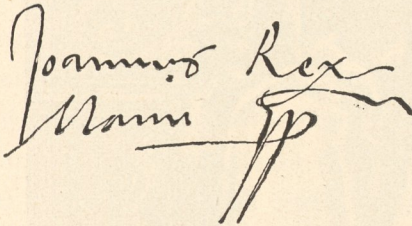 Joannes Rex
Manu pp